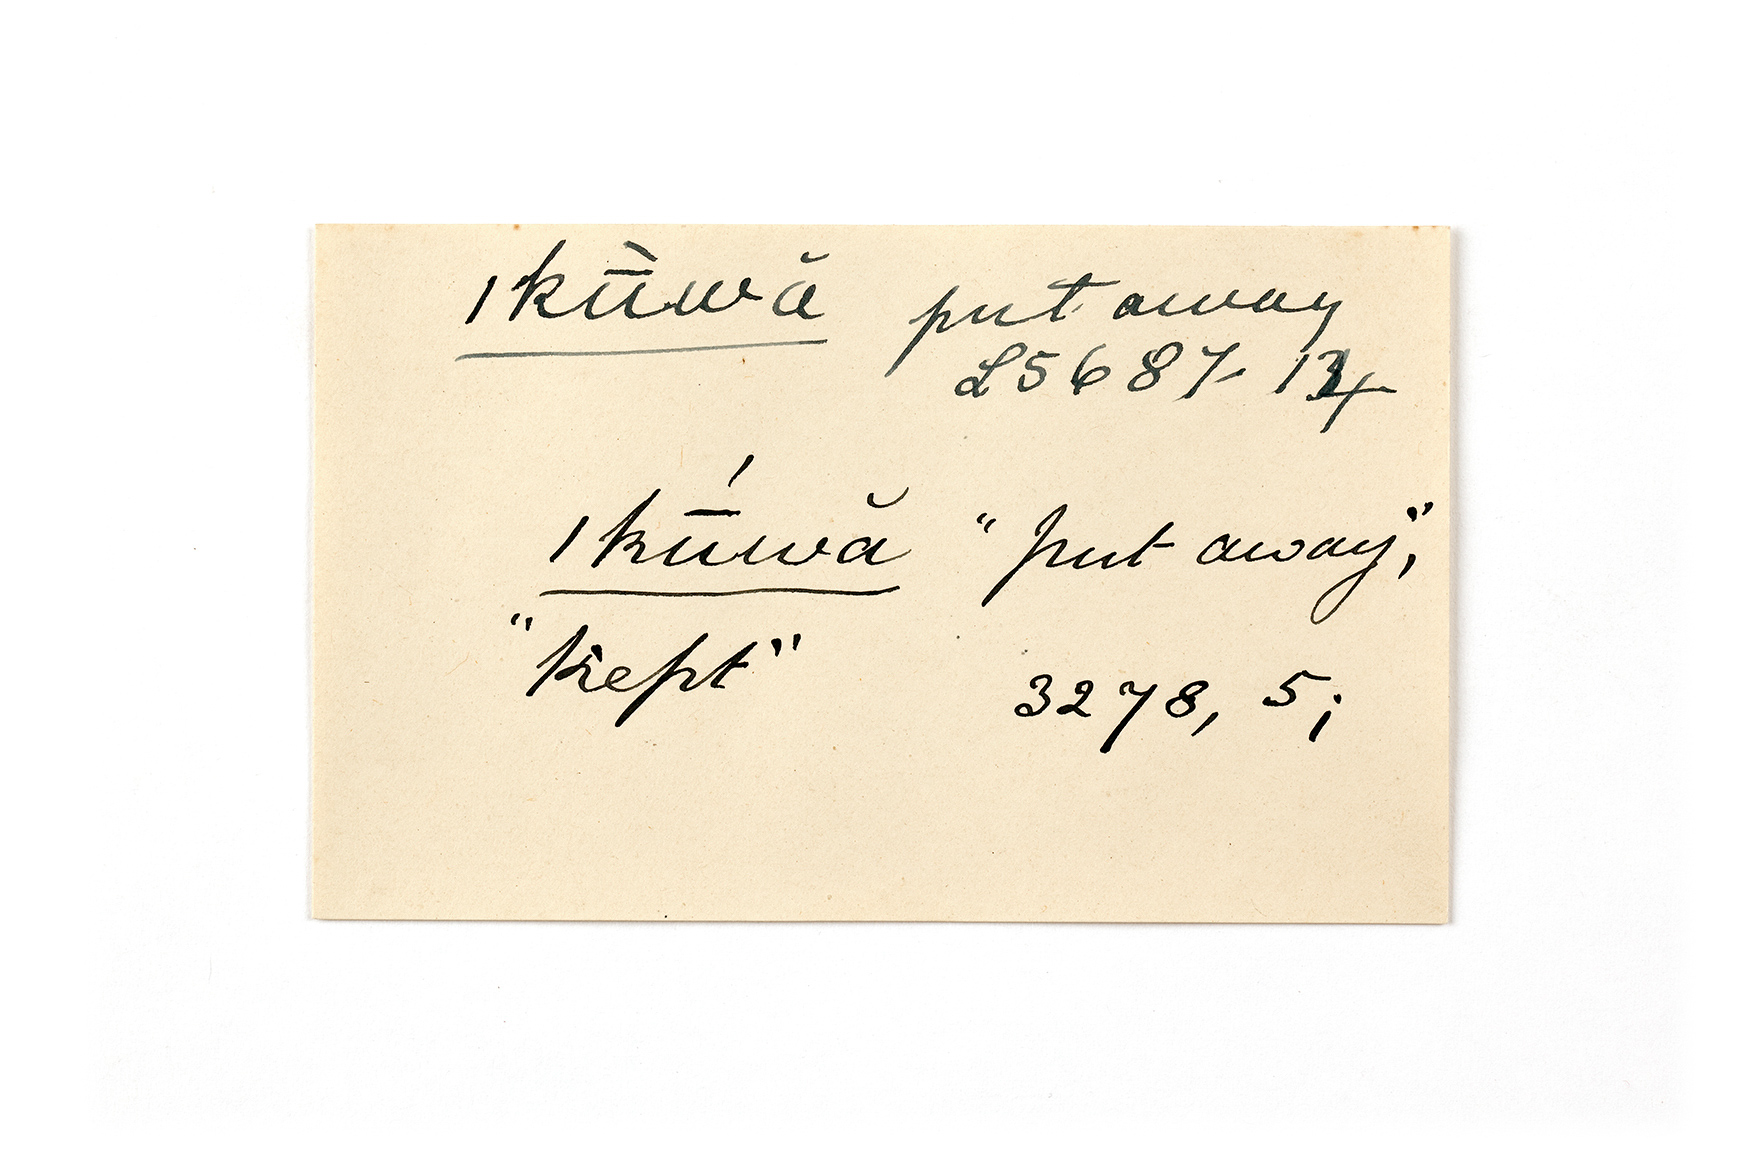 ıkū̀wă put away
L5687-14
ıkū́wă "put away,"
"kept" 3278, 5;